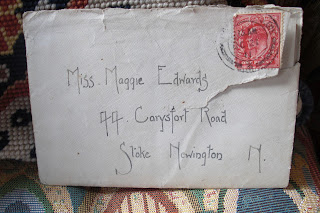 Miss. Maggie Edwards
44. Carysfort Road
Stoke Newington N.